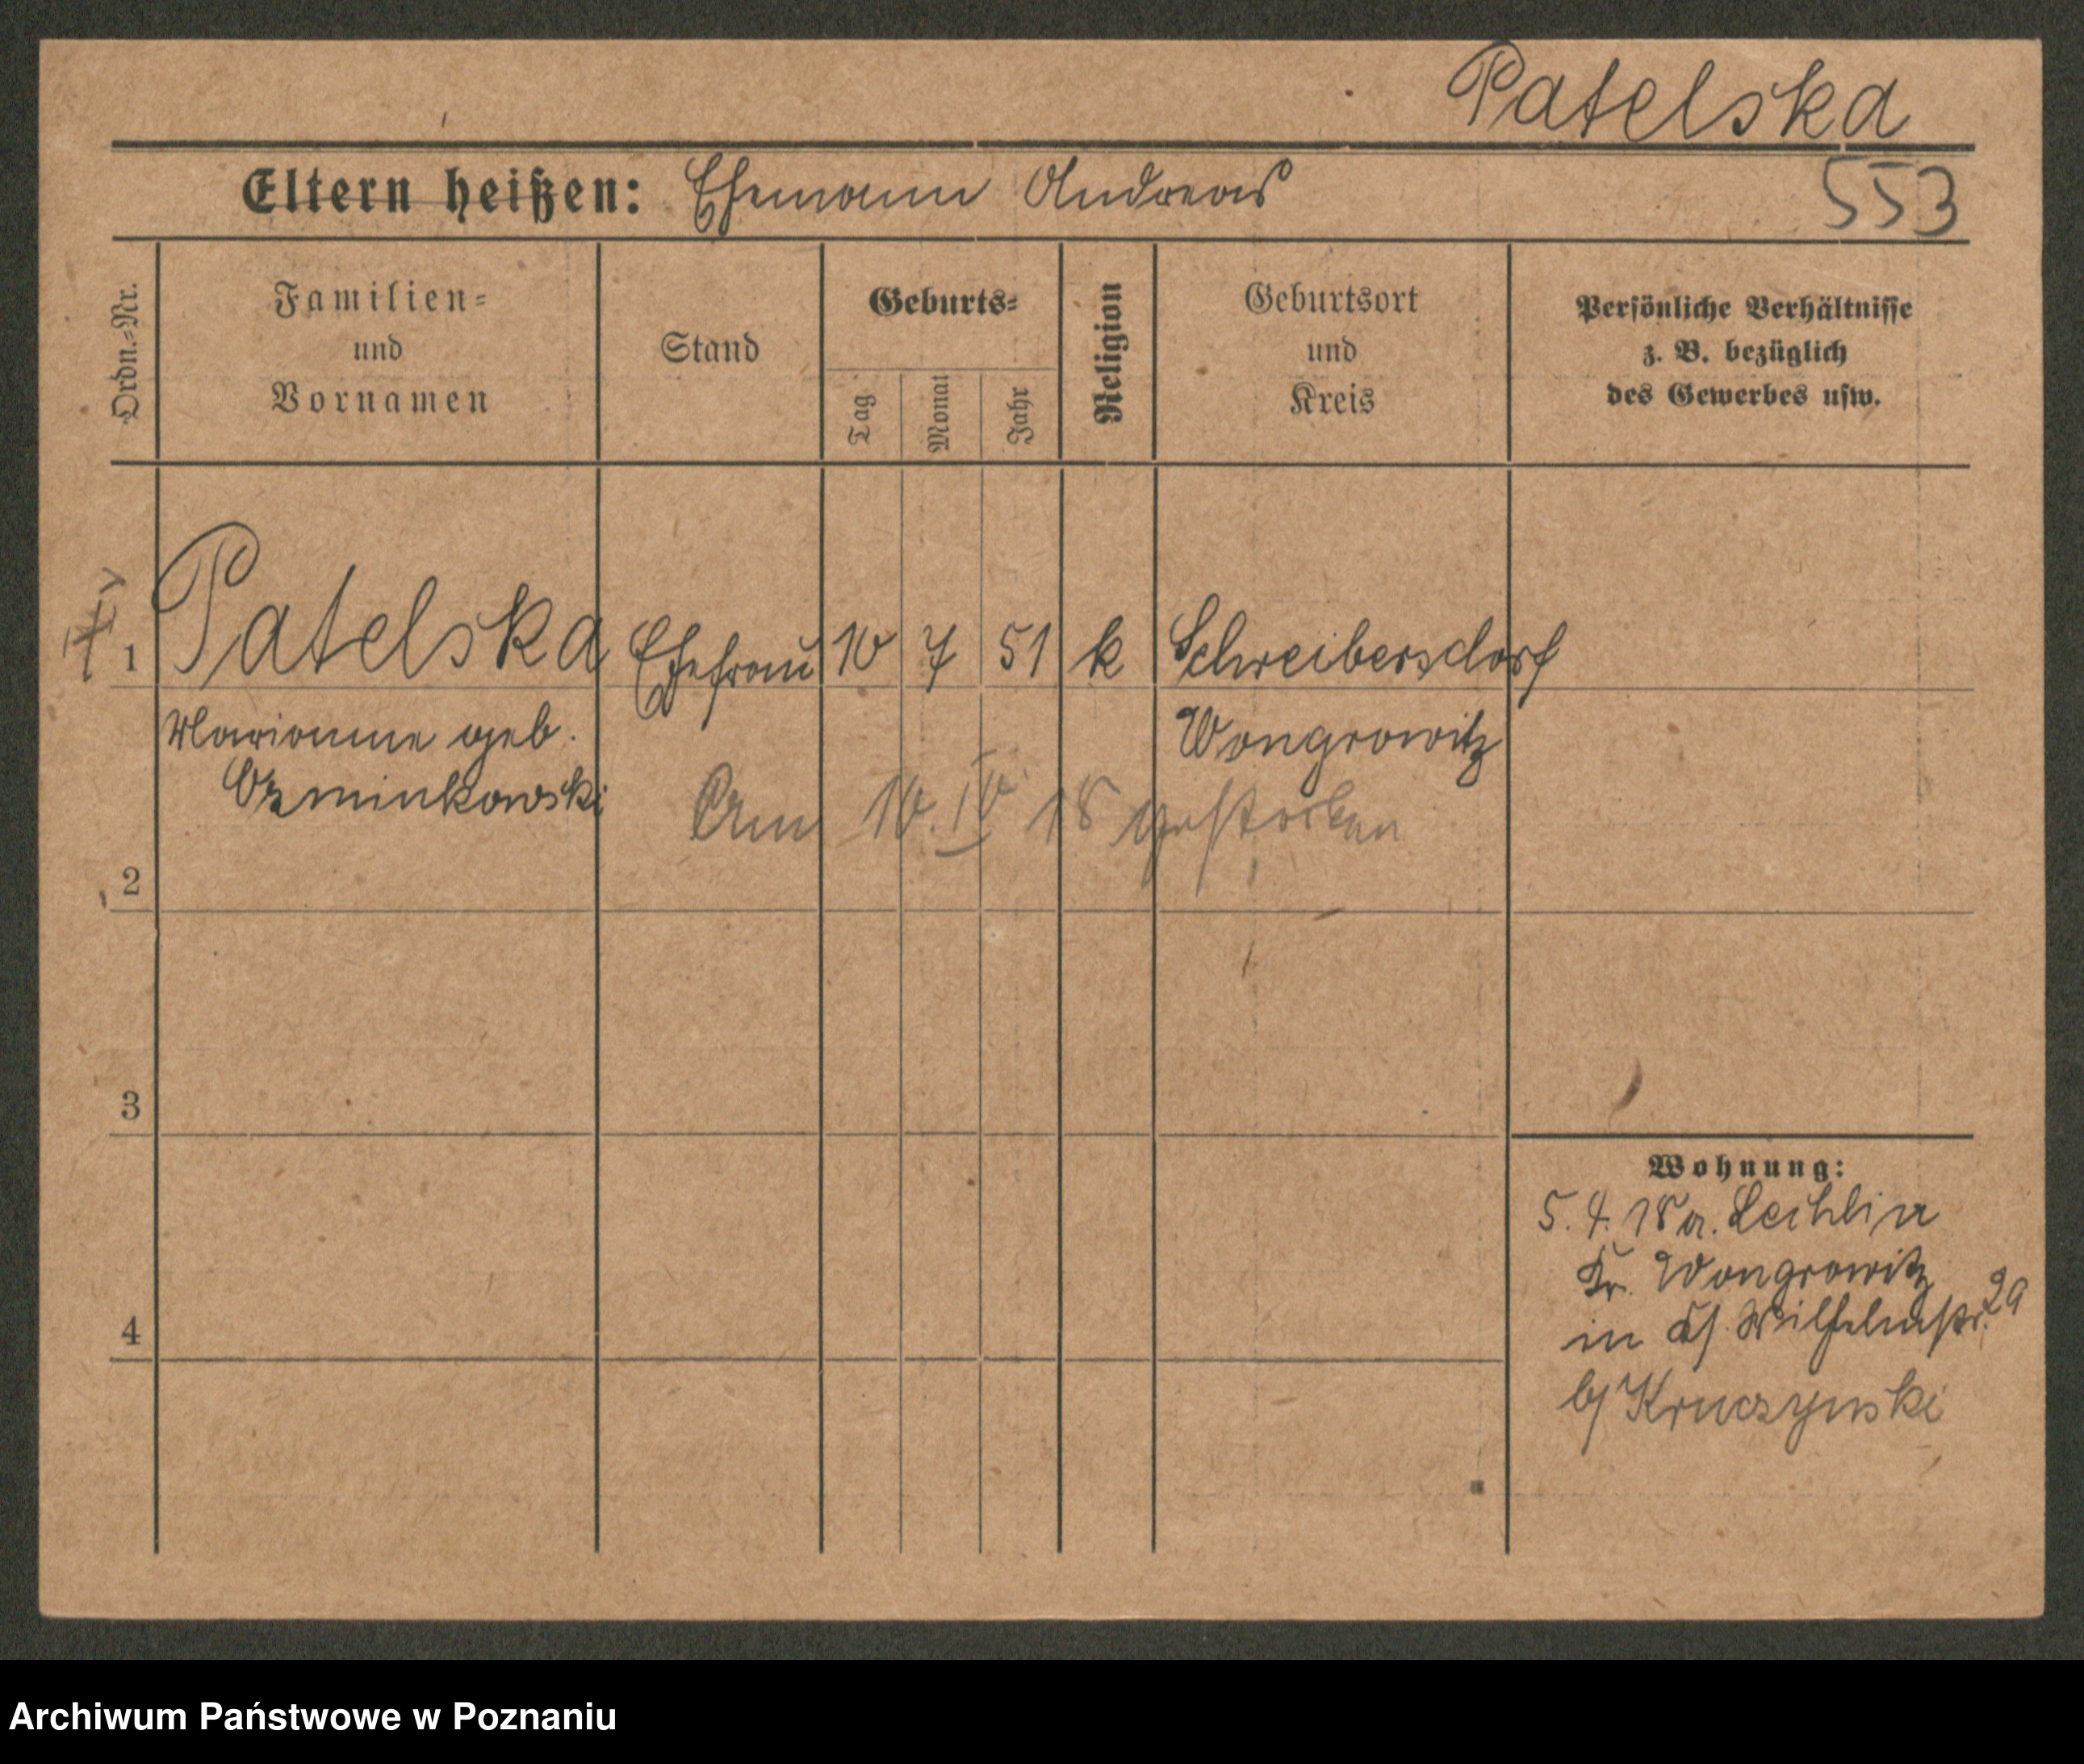 Patelska
Eltern heißen: Ehemann Andreas
553
Ordn.-Nr.
Familien-
und
Vornamen
Stand
Geburts-
Tag
Monat
Jahr
Religion
Geburtsort
und
Kreis
Persönliche Verhältnisse
z. B. bezüglich
des Gewerbes usw.
1 Patelska Ehefrau 10 7 51 k Schreibersdorf
Marianne geb. Wongrowitz
Orzminkowski
Am 10. IV 18 gestorben
2
3
4
Wohnung:
5. 4. 18 a. Lechlin
Kr. Wongrowitz
in Wilhelmstr. 29
b/ Kruczynski
Archiwum Państwowe w Poznaniu